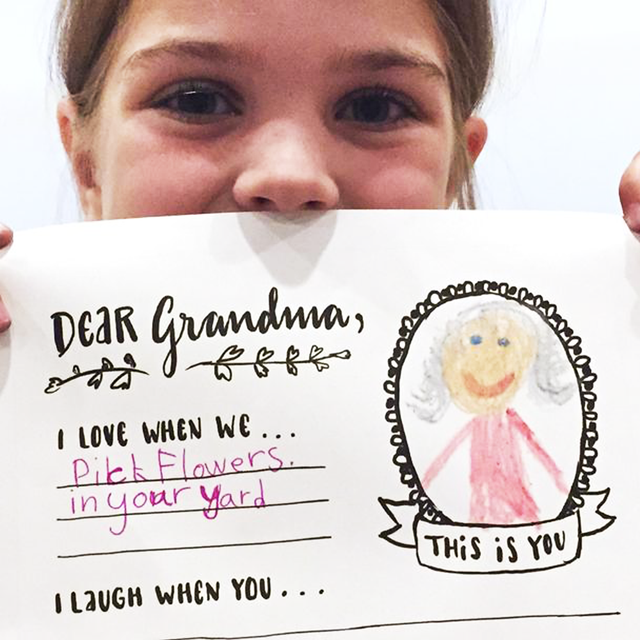 DEAR Grandma,
I LOVE WHEN WE...
Pick Flowers.
in your yard
THIS IS YOU
I LAUGH WHEN YOU...